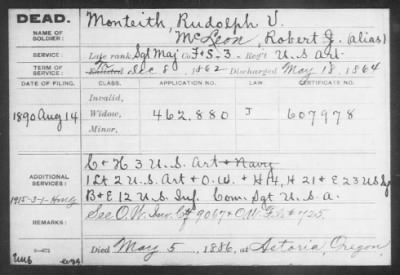 DEAD.
NAME OF SOLDIER:
Monteith, Rudolph V.
McLeon, Robert J. (alias)
SERVICE:
Late rank Sgt Maj Co F+S-3- Reg't U.S. Art.
TERM OF SERVICE:
Enlisted Dec 8, 1862 Discharged May 18, 1864
DATE OF FILING. CLASS. APPLICATION NO. LAW CERTIFICATE NO.
Invalid,
1890 Aug 14 Widow, 462.880 J 607978
Minor,
ADDITIONAL SERVICES:
C + H 3 U.S. Art + Navy
1 Lt 2 U.S. Art + O.W. + H 14, H 21 + E 23 US Inf
B + E 12 U.S. Inf. Com. Sgt U.S.A.
REMARKS:
See O.W. Inv. Ctf 9067 + O.W. # 4725.
Died May 5, 1886, at Astoria, Oregon